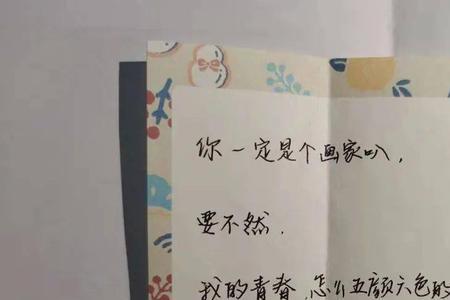 你一定是个画家叭，
要不然，
我的青春，怎么五颜六色的